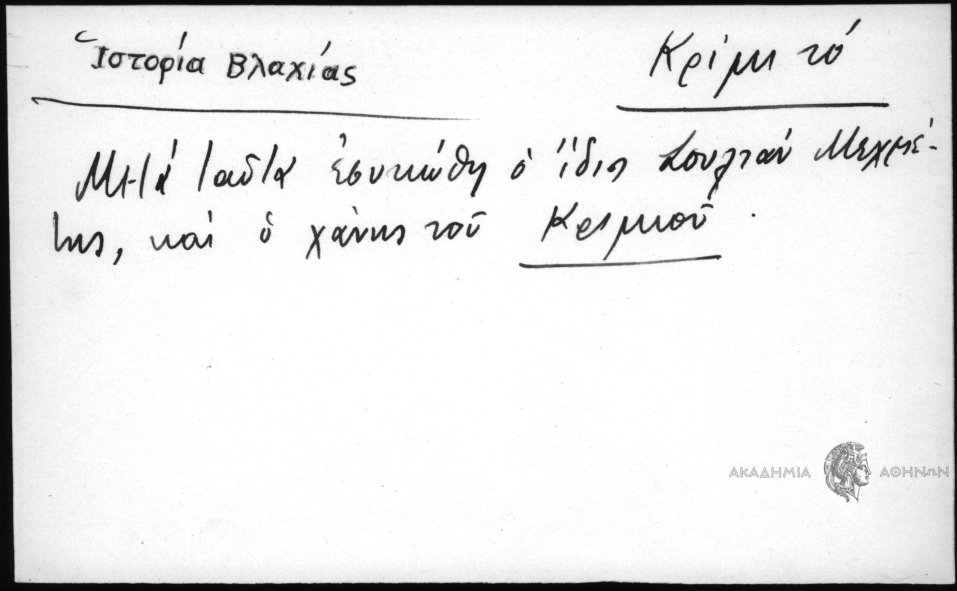 Ἱστορία Βλαχίας
Κρίμι τό
Μετά ταῦτα ἐσυκώθη ὁ ἴδιος Σουλτάν Μεχμέ-
της, καί ὁ χάνης τοῦ Κριμιοῦ.
ΑΚΑΔΗΜΙΑ ΑΘΗΝΩΝ